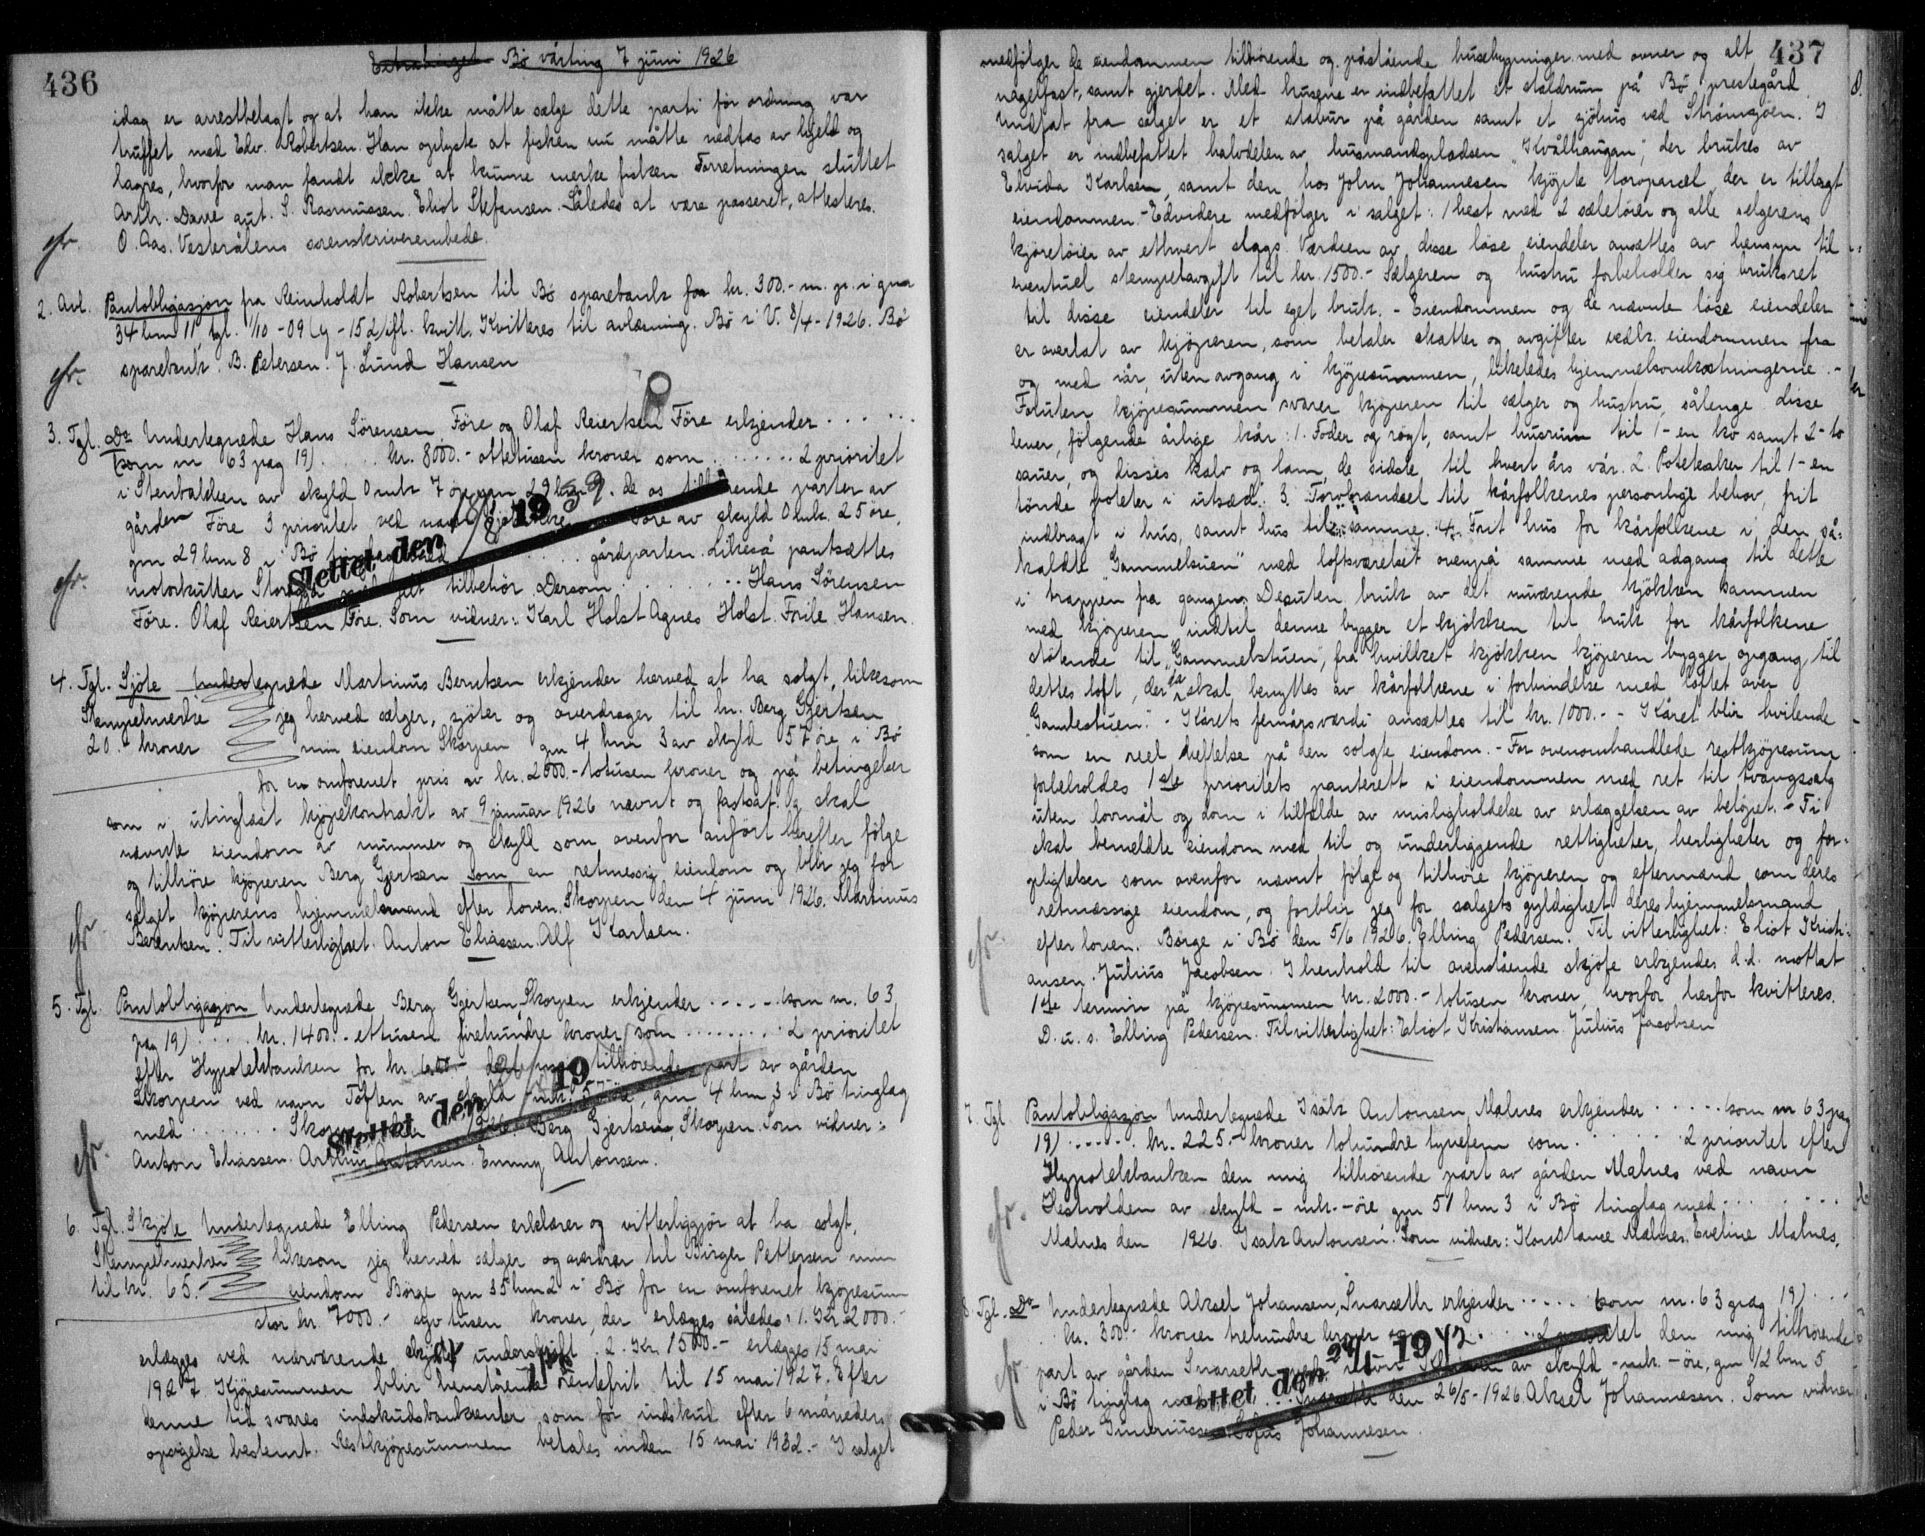 436
Extratinget Bø vårting 7 juni 1926
idag er arrestbelagt og at han ikke måtte sælge dette parti før ordning var
truffet med Edv. Robertsen. Han oplyste at fisken nu måtte nedtas av hjeld og
lagres, hvorfor man fandt ikke at kunne merke fisken Forretningen sluttet
Arthr. Dave aut. S. Rasmussen. Eliot Stefansen. Således at være passeret, attesteres.
O. Aas. Vesterålens sorenskriverembede.
2. Avl. Pantobligasjon fra Reinholdt Robertsen til Bø sparebank for kr. 300.- m. p. i gnr
34 bnr 11, tgl. 1/10-09 Cg-152, ifl. kvitt. Kvitteres til avlæsning. Bø i V. 8/4-1926. Bø
sparebank. B. Petersen. J. Lund Hansen
3. Tgl. Do Undertegnede Hans Sörensen Före og Olaf Reiertsen Före erkjender ......
(som nr 63 pag 19) .... kr. 8000.- ottetusen kroner som ........ 2 prioritet
i Stenbakken av skyld 0 mrk 7 øre gnr 29 bnr 9. de os tilhørende parter av
gården Före 3 prioritet ved navn Före av skyld 0 mrk. 25 öre,
gnr 29 bnr 8 i Bø ........ gårdparten. Likeså pantsættes
motorkutter med alt tilbehör. Dersom ........ Hans Sörensen
Före. Olaf Reiertsen Före. Som vidner: Karl Holst Agnes Holst. Frile Hansen.
Slettet den 19 59.
4. Tgl. Skjöte Undertegnede Martinus Berntsen erkjender herved at ha solgt, likesom
Stempelmerke jeg herved sælger, sjöter og overdrager til hr. Berg Gjertsen
20.- kroner min eiendom Skorpen gnr 4 bnr 3 av skyld 57 öre i Bö
for en omforenet pris av kr. 2000.- totusen kroner og på betingelser
som i utinglæst kjöpekontrakt av 9 januar 1926 nævnt og fastsat. Og skal
nævnte eiendom av nummer og skyld som ovenfor anfört herefter følge
og tilhöre kjöperen Berg Gjertsen som en retmessig eiendom og blir jeg for
salget kjöperens hjemmelsmand efter loven. Skorpen den 4 juni 1926. Martinus
Berentsen. Til vitterlighet. Anton Eliassen. Alf Karlsen.
5. Tgl. Pantobligasjon Undertegnede Berg Gjertsen, Skorpen erkjender ..... (som nr. 63
pag 19) ..... kr. 1400.- ettusen firehundre kroner som ........ 2 prioritet
efter Hypotekbanken for kr. den mig tilhörende part av gården
Skorpen ved navn Toften av skyld mrk. 57 öre, gnr 4 bnr 3 i Bö tinglag
med ........ Skorpen den 1926. Berg Gjertsen, Skorpen. Som vidner:
Anton Eliassen. Arthur Antonsen. Emmy Antonsen.
Slettet den 19
6. Tgl. Skjöte Undertegnede Elling Pedersen erklærer og vitterliggjør at ha solgt,
Stempelmerker likesom jeg herved sælger og avdrar til Birger Pettersen min
til kr. 65.- eiendom Börge gnr 35 bnr 2 i Bö for en omforenet kjöpesum
stor kr. 7000.- syv tusen kroner, der erlægges således: 1. Kr. 2000.
erlægges ved nærværende skjötes underskrift. 2. Kr. 1500.- erlægges 15 mai
1927. Kjöpesummen blir henstående rentefrit til 15 mai 1927. Efter
denne tid svares indskudsbankrenter som for indskud efter 6 måneders
opsigelse bestemt. Restkjöpesummen betales inden 15 mai 1932.- I salget
437
medfölger de eiendommen tilhörende og påstående husebygninger med ovner og alt
nagelfast, samt gjerdet. Med husene er indbefattet et staldrum på Bö prestegård.
Undtat fra salget er et stabur på gården samt et sjöhus ved Strömsjöen. I
salget er indbefattet halvdelen av husmandspladsen "Kvålhaugan", der brukes av
Elvida Karlsen, samt den hos John Johannesen kjöpte torvparcel, der er tillagt
eiendommen.- Edvidere medfölger i salget: 1 hest med 2 sæletöier og alle selgerens
kjøretöier av ethvert slags. Værdien av disse löse eiendeler ansættes av hensyn til
eventuel stempelavgift til kr. 1500.- Sælgeren og hustru forbeholder sig bruksret
til disse eiendeler til eget bruk. - Eiendommen og de nævnte löse eiendeler
er overtat av kjöperen, som betaler skatter og avgifter vedk. eiendommen fra
og med iår uten avgang i kjöpesummen, likeledes hjemmelsomkostningerne. -
Foruten kjöpesummen svarer kjöperen til sælger og hustru, sålenge disse
lever, fölgende årlige kår: 1. Foder og rögt, samt husrum til 1-en ko samt 2-to
sauer, og disses kalv og lam, de sidste til hvert års vår. 2. Poteteaker til 1-en
tönde poteter i utsæd. 3. Torvbrændsel til kårfolkenes personlige behov, frit
indbragt i hus, samt hus til samme. 4. Frit hus for kårfolkene i den så-
kaldte "Gammelstuen" med loftsværelset ovenpå samme med adgang til dette
i trappen fra gangen. Desuten bruk av det nuværende kjökken sammen
med kjöperen indtil denne bygger et kjökken til bruk for kårfolkene
stötende til "Gammelstuen", fra hvilket kjökken kjöperen bygger opgang til
dettes loft, der da skal benyttes av kårfolkene i forbindelse med loftet over
"Gamlestuen". - Kårets femårsværdi ansættes til kr. 1000.- - Kåret blir hvilende
som en reel heftelse på den solgte eiendom. - For ovenomhandlede restkjöpesum
forbeholdes 1ste prioritets panterett i eiendommen med ret til tvangssalg
uten lovmål og dom i tilfælde av misligholdelse av erlæggelsen av belöpet. - Ti
skal bemeldte eiendom med til og underliggende rettigheter, herligheter og for-
pligtelser som ovenfor nævnt fölge og tilhöre kjöperen og eftermænd som deres
retmæssige eiendom, og forblir jeg for salgets gyldighet deres hjemmelsmand
efter loven. Börge i Bö den 5/6 1926. Elling Pedersen. Til vitterlighet: Eliot Kristi-
ansen. Julius Jacobsen. I henhold til ovenstående skjöte erkjendes d.d. mottat
1ste termin på kjöpesummen kr. 2000.- totusen kroner, hvorfor herfor kvitteres.
D. u. s. Elling Pedersen. Til vitterlighet: Eliot Kristiansen. Julius Jacobsen
7. Tgl Pantobligasjon Undertegnede Isak Antonsen Malnes erkjender ..... (som nr 63 pag
19) ...... kr. 225.- kroner tohundre tyvefem som ....... 2 prioritet efter
Hypotekbanken den mig tilhörende part av gården Malnes ved navn
Hestvolden av skyld - mrk. - öre gnr 51 bnr 3 i Bö tinglag med ........
Malnes den 1926. Isak Antonsen. Som vidner: Konstance Malnes. Eveline Malnes.
8 Tgl. Do- Undertegnede Aksel Johansen, Svarseth erkjender ..... (som nr. 63 pag 19) ...
.. kr. 300.- kroner trehundre kroner som ..... 2 prioritet den mig tilhörende
part av gården ved navn av skyld - mrk. - öre, gnr 12 bnr 5
i Bö tinglag med ..... den 26/5-1926. Aksel Johannesen. Som vidner
Peder Johannesen.
Slettet den 24/1 1942